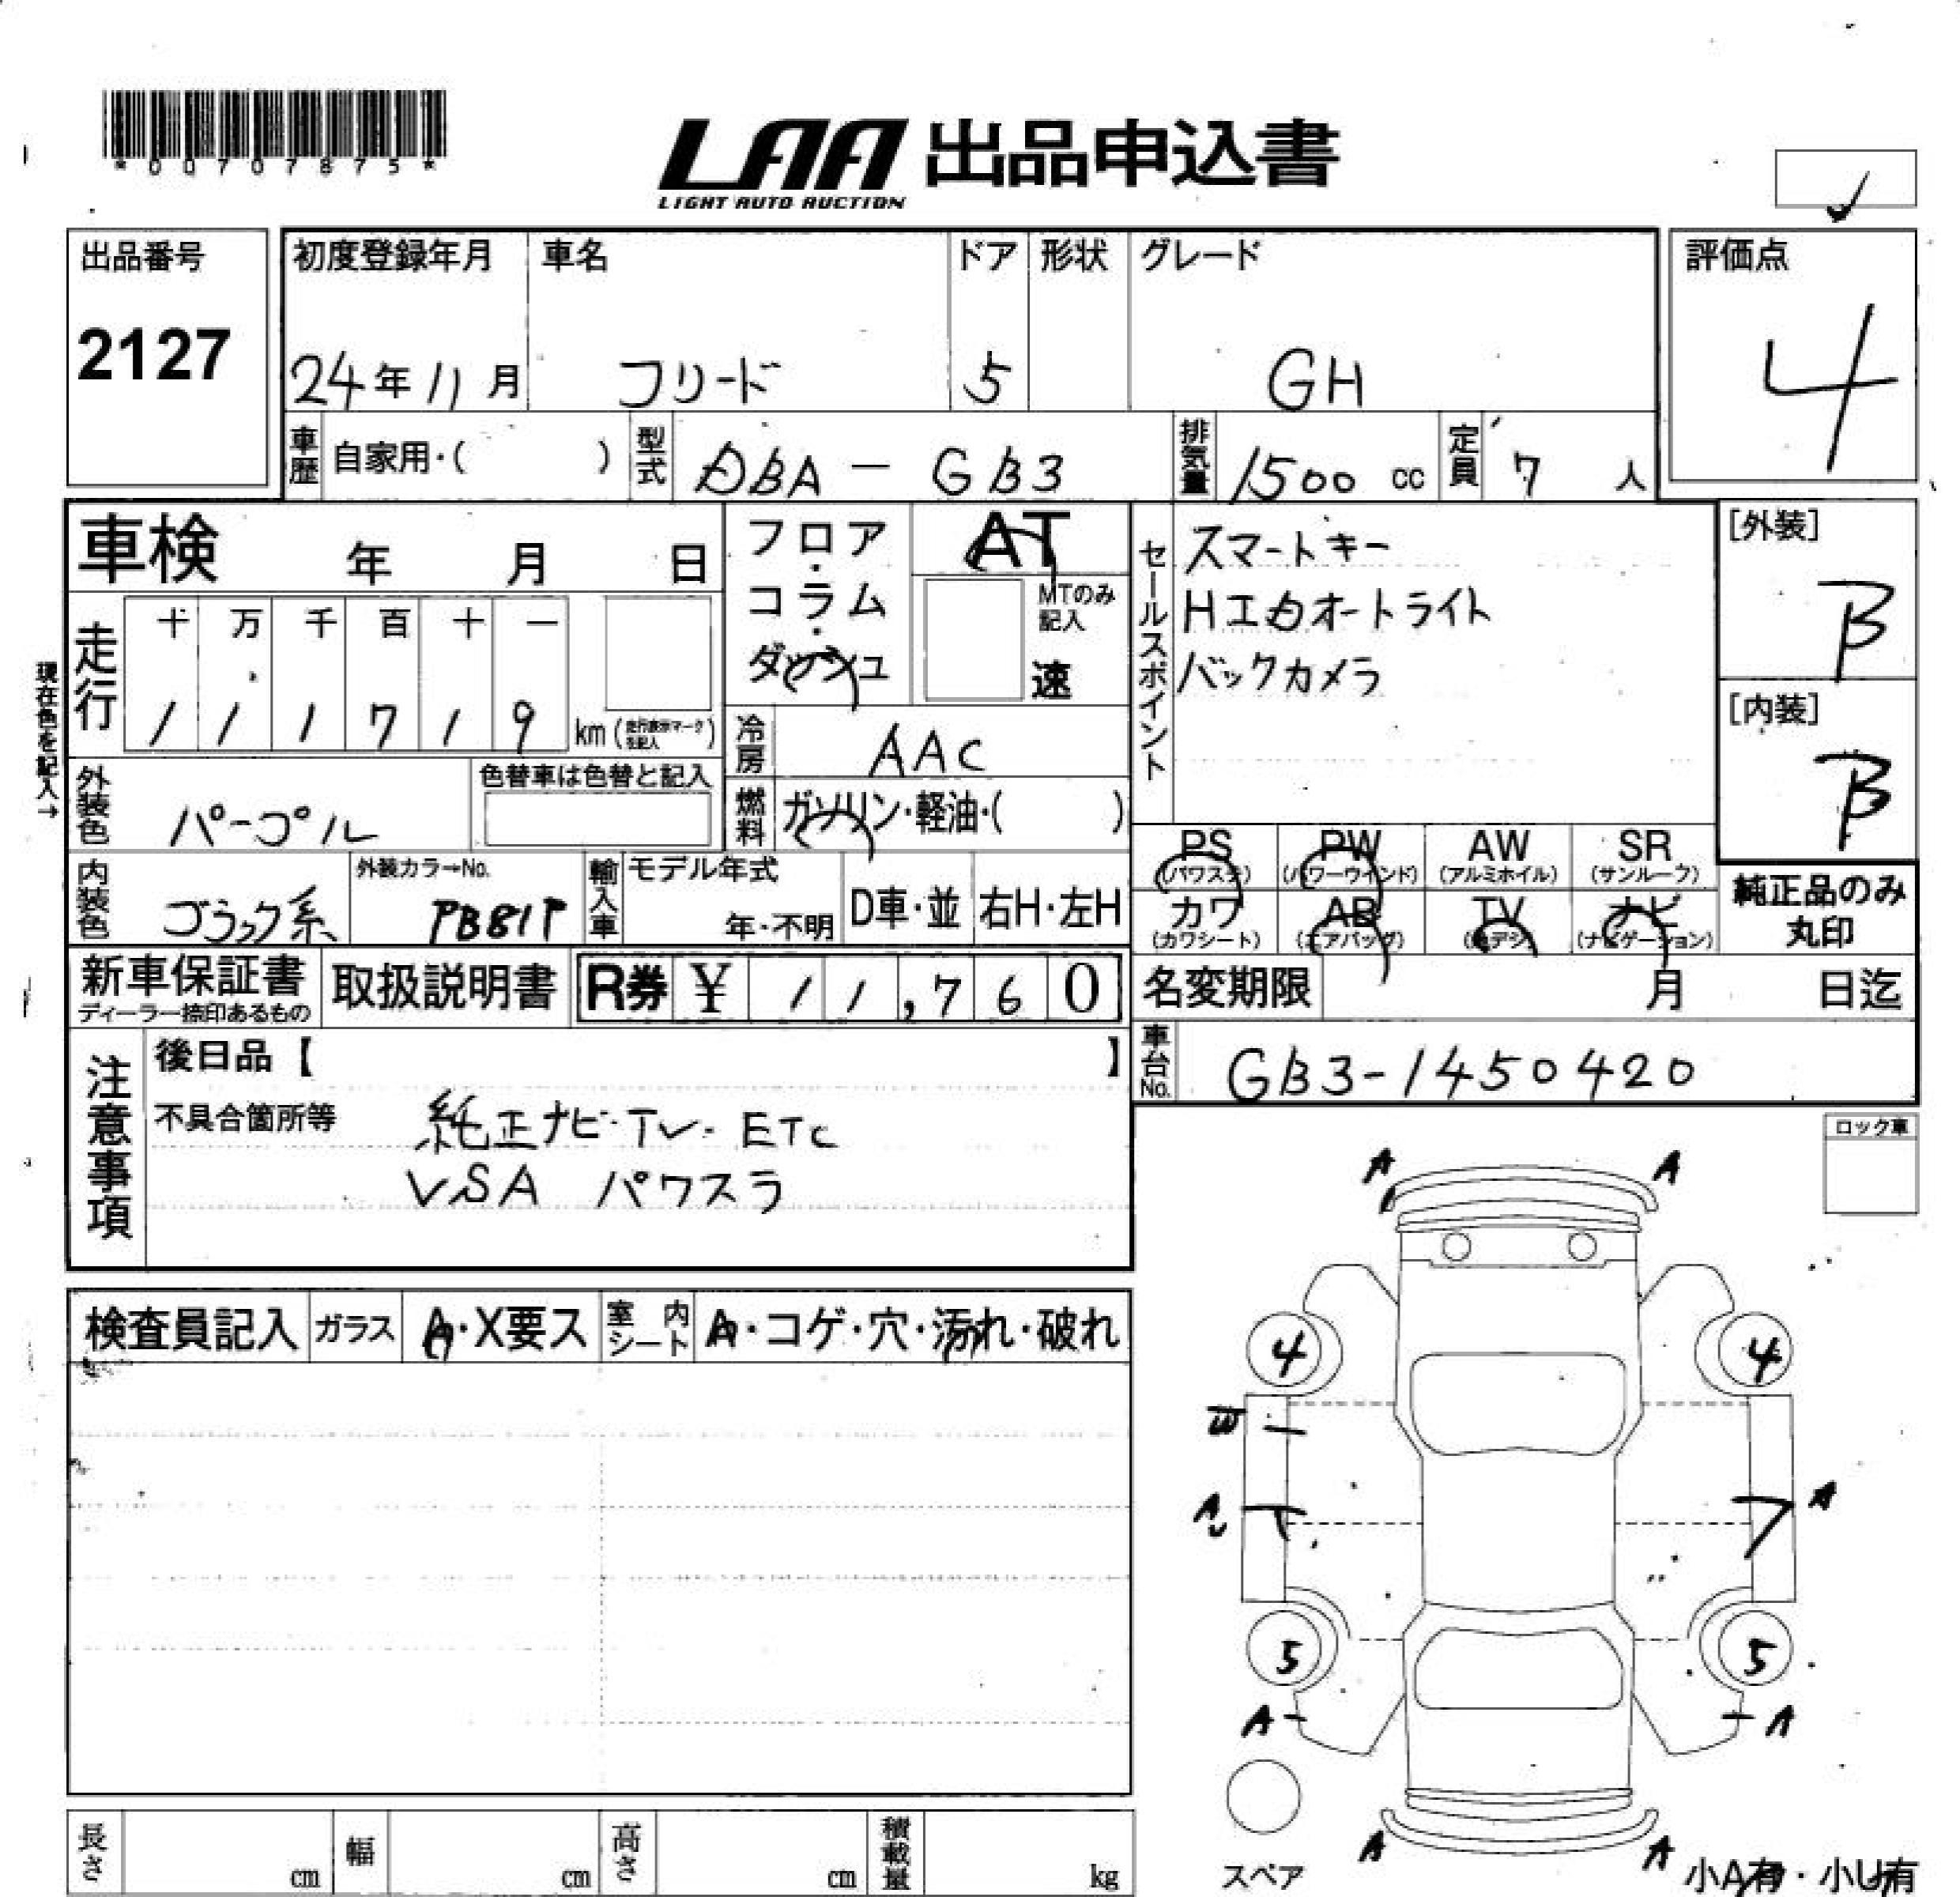 *00707875*
LAA 出品申込書
LIGHT AUTO AUCTION
出品番号
2127
初度登録年月 車名 ドア 形状 グレード
24年11月 フリード 5 GH
評価点
4
車歴 自家用・( ) 型式 DBA - GB3 排気量 1500 cc 定員 7 人
車検 年 月 日
フロア・コラム・ダッシュ
AT
MTのみ記入
速
現在色を記入→
走行 十 万 千 百 十 一
1 1 1 7 1 9 km (走行表示マークを記入)
冷房 AAC
燃料 ガソリン・軽油・( )
セールスポイント
スマートキー
HIDオートライト
バックカメラ
[外装]
B
[内装]
B
外装色 パープル 色替車は色替と記入
内装色 ブラック系 外装カラーNo. PB81P
輸入車 モデル年式 年・不明 D車・並 右H・左H
PS (パワステ) PW (パワーウインド) AW (アルミホイル) SR (サンルーフ)
カワ (カワシート) AB (エアバッグ) TV (地デジ) ナビ (ナビゲーション)
純正品のみ丸印
新車保証書 ディーラー捺印あるもの 取扱説明書 R券 ¥ 11,760
名変期限 月 日迄
車台No. GB3-1450420
注意事項
後日品【 】
不具合箇所等 純正ナビ・TV・ETC
VSA パワスラ
ロック車
検査員記入 ガラス A・X要ス 室内シート A・コゲ・穴・汚れ・破れ
A A
4 4
W
A
A
U
5 5
A A
A A
スペア
小A有・小U有
長さ cm 幅 cm 高さ cm 積載量 kg